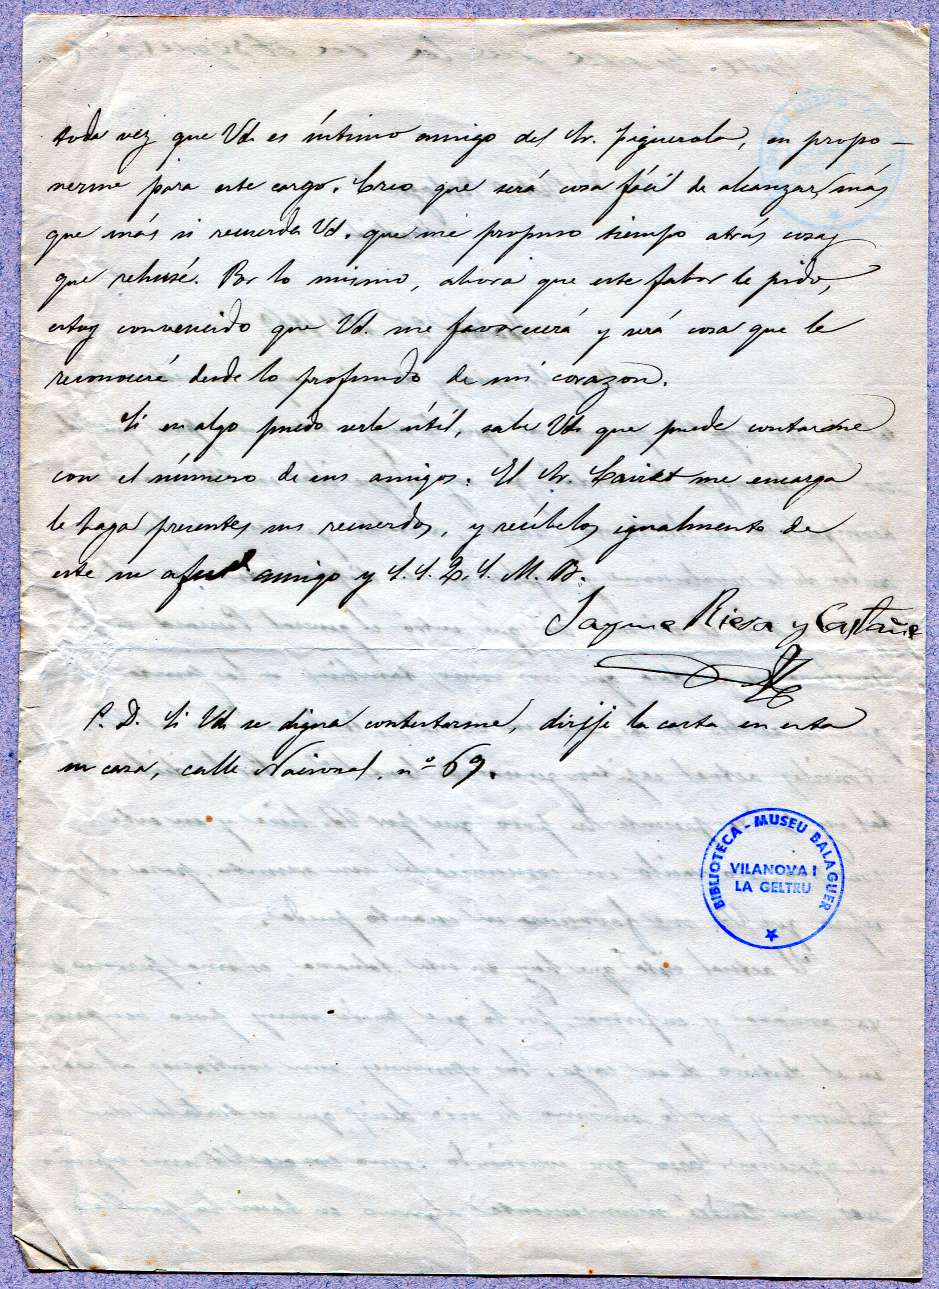 toda vez que Vd. es íntimo amigo del Sr. Figuerola, en propo-
nerme para este cargo. Creo que será cosa fácil de alcanzar, más
que más si recuerda Vd. que me propuso tiempo atrás cosas
que rehusé. Por lo mismo, ahora que este fabor le pido,
estoy convencido que Vd. me favorecerá y será cosa que le
reconoceré desde lo profundo de mi corazon.
Si en algo puedo serle útil, sabe Vd. que puede contarme
con el número de sus amigos. El Sr. me encarga
le haga presentes sus recuerdos, y recíbelos igualmente de
este su amigo y S. S. Q. S. M. B.
Jayme Riera y Castañe
P. D. Si Vd. se digna contestarme, dirije la carta en esta
su casa, calle Nacional, nº 69.
BIBLIOTECA - MUSEU BALAGUER
VILANOVA I
LA GELTRU